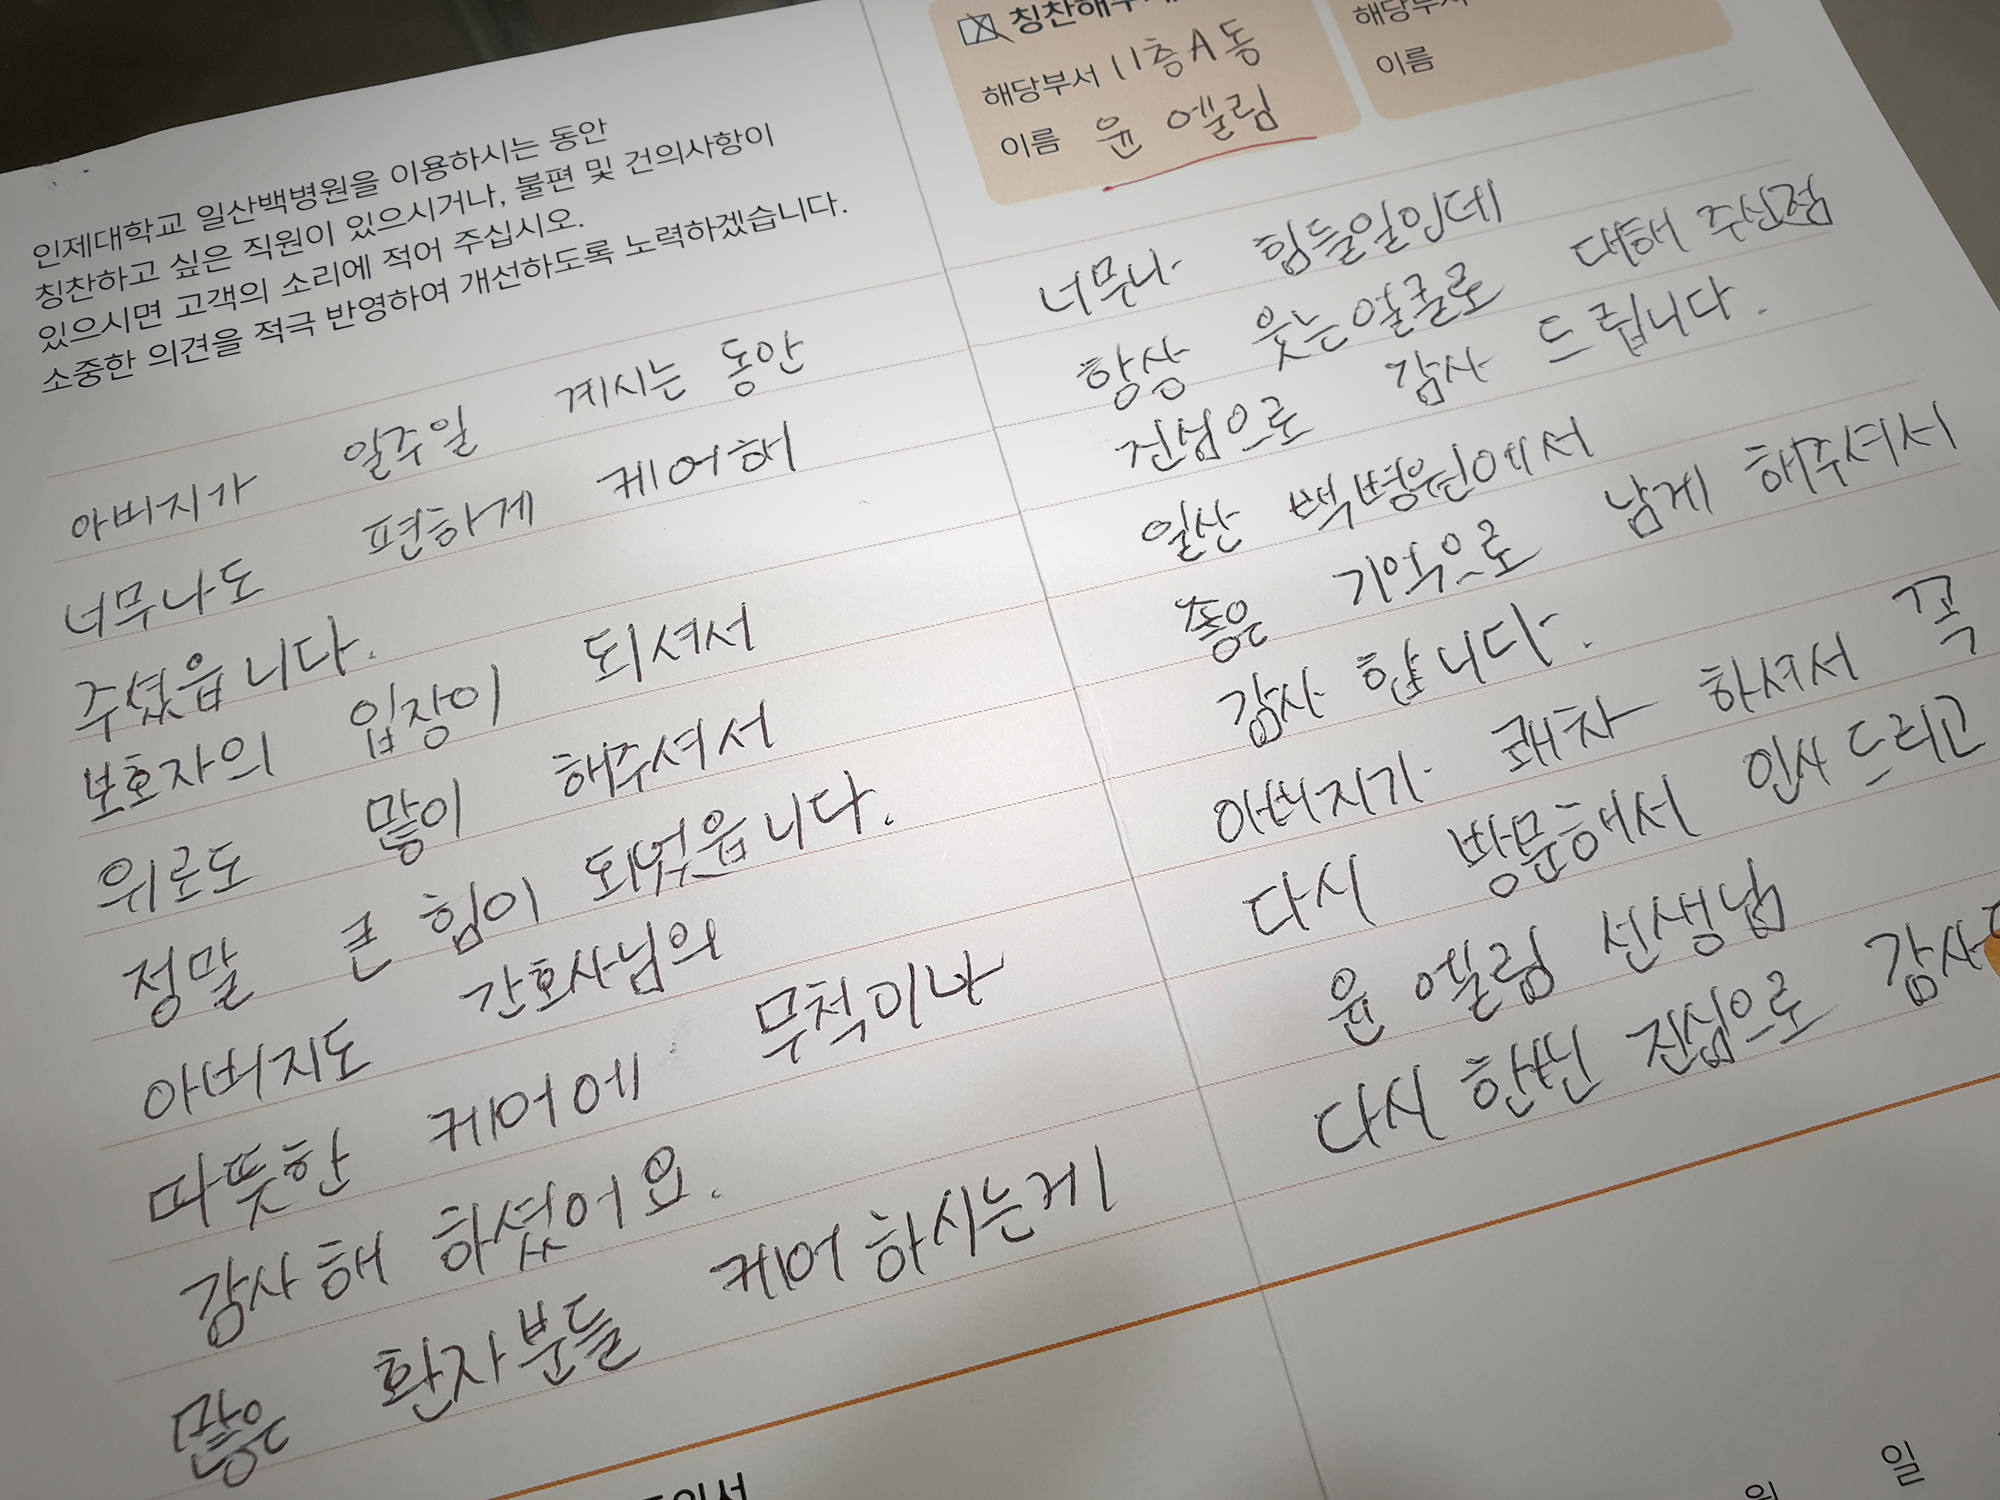 인제대학교 일산백병원을 이용하시는 동안
칭찬하고 싶은 직원이 있으시거나, 불편 및 건의사항이
있으시면 고객의 소리에 적어 주십시오.
소중한 의견을 적극 반영하여 개선하도록 노력하겠습니다.
아버지가 일주일 계시는 동안
너무나도 편하게 케어해
주셨읍니다.
보호자의 입장이 되셔서
위로도 많이 해주셔서
정말 큰 힘이 되었읍니다.
아버지도 간호사님의
따뜻한 케어에 무척이나
감사해 하셨어요.
많은 환자분들 케어 하시는게
칭찬해주세
해당부서 11층A동
이름 윤 예림
해당부서
이름
너무나 힘들일인데
항상 웃는얼굴로 대해 주신점
진심으로 감사 드립니다.
일산 백병원에서
좋은 기억으로 남게 해주셔서
감사 합니다.
아버지가 쾌차 하셔서 꼭
다시 방문해서 인사드리고
윤 예림 선생님
다시 한번 진심으로 감사
월 일